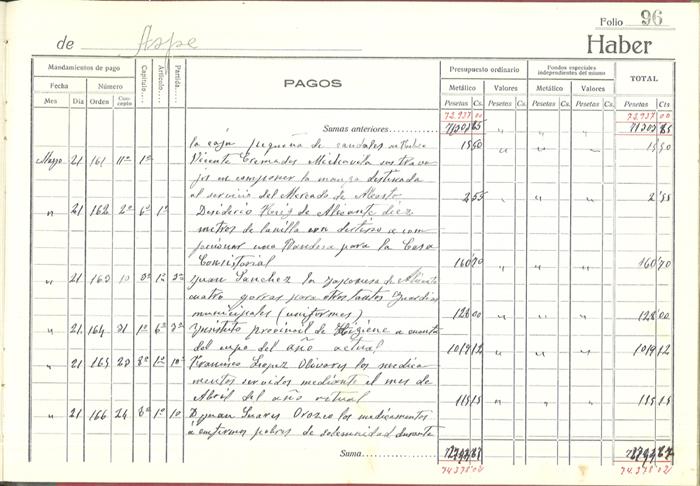 Folio 96
de Aspe Haber
Mandamientos de pago
Fecha Número
Mes Día Orden Concepto
Capítulo
Artículo
Partida
PAGOS
Presupuesto ordinario
Metálico Valores
Pesetas Cs. Pesetas Cs.
Fondos especiales
independientes del mismo
Metálico Valores
Pesetas Cs. Pesetas Cs.
TOTAL
Pesetas Cts
72.937 00 72.937 00
Sumas anteriores
la casa pequeña de 15 50 " " " 15 50
Mayo 21 161 11º 1º Vicente Cremades sus traba
jos en componer la manga destinada
al servicio del Mercado de Abasto 2 55 " " " 2 55
" 21 162 2º 6º 1º Desiderio de Alicante diez
metros de lanilla con destino a con
feccionar una Bandera para la Casa
Consistorial 160 70 " " " 160 70
" 21 163 10 Juan Sanchez la Japonesa de Alicante
cuatro gorras para otros tantos Guardias
municipales (uniformes) 128 00 " " " 128 00
" 21 164 31 1º 6º Instituto provincial de Higiene a cuenta
del cupo del año actual 1019 12 " " " 1019 12
" 21 165 23 8º 1º 10º Francisco Lopez Olivares los medica
mentos servidos mediante el mes de
Abril del año actual 115 15 " " " 115 15
" 21 166 24 8º 1º 10 D. Juan Suares Orozco los medicamentos
á enfermos pobres de solemnidad durante
Suma
74.378 02 74.378 02